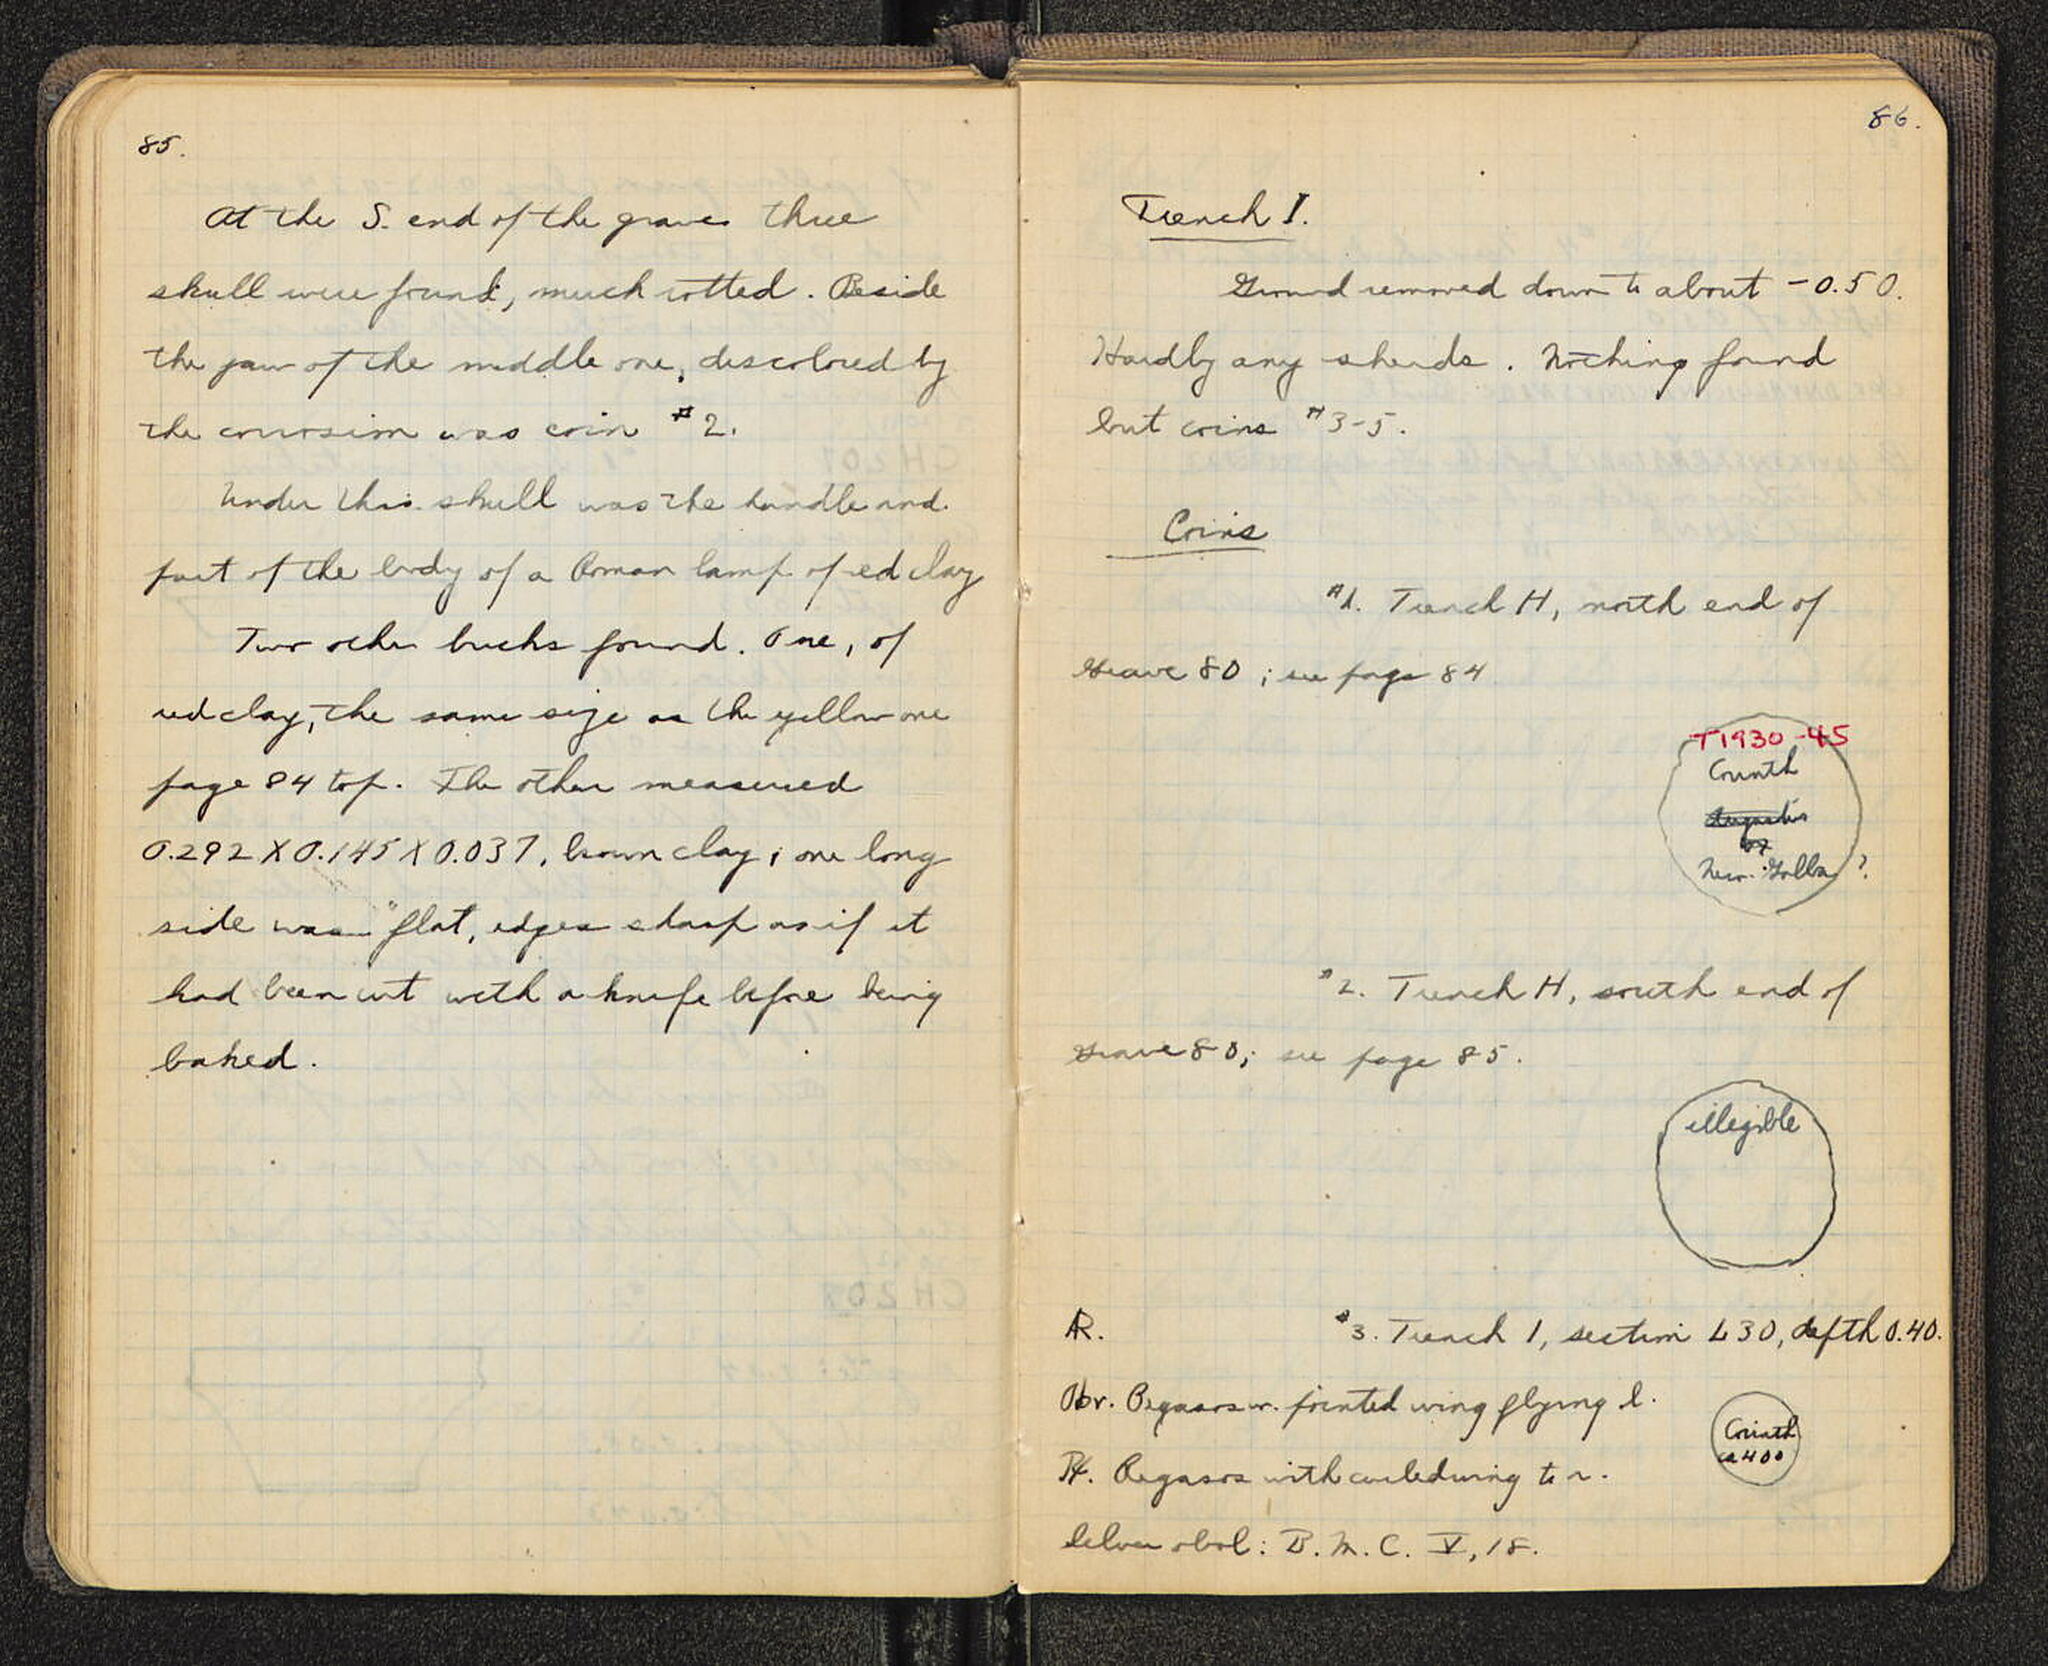 85.
At the S. end of the graves three
skull were found, much rotted. Beside
the jaw of the middle one, discolored by
the corrosion was coin #2.
Under this skull was the handle and
part of the body of a Roman lamp of red clay
Two other bricks found. One, of
red clay, the same size as the yellow one
page 84 top. The other measured
0.292 X 0.145 X 0.037, brown clay; one long
side was "flat, edges sharp as if it
had been cut with a knife before being
baked.
86.
Trench I.
Ground removed down to about -0.50.
Hardly any sherds. Nothing found
but coins #3-5.
Coins
#1. Trench H, north end of
Grave 80; see page 84
T1930-45
Corinth
Augustus
or
Nero-Galba?
#2. Trench H, south end of
Grave 80; see page 85.
illegible
AR. #3. Trench I, section L30, depth 0.40.
Obv. Pegasos w. pointed wing flying l.
Corinth
ca 400
R. Pegasos with curled wing to r.
Silver obol: B.M.C. V, 18.